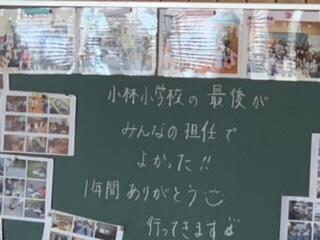 小林小学校の最後が
みんなの担任で
よかった!!
1年間ありがとう
行ってきます